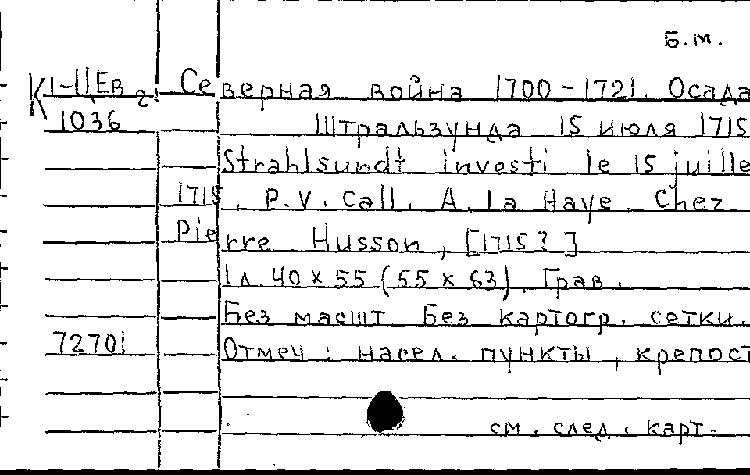 Б.м.
К 1-11Ев 2. Северная война 1700-1721. Осада
1036 Штральзунда 15 июля 1715
Strahlsundt investi le 15 juille
1715, P.v. Call. A la Haye. Chez
Pierre Husson, [1715?]
1 л. 40 x 55 (55 x 63). Грав.
Без масшт. Без картогр. сетки.
72701 Отмеч: насел. пункты, крепост
см. след. карт.